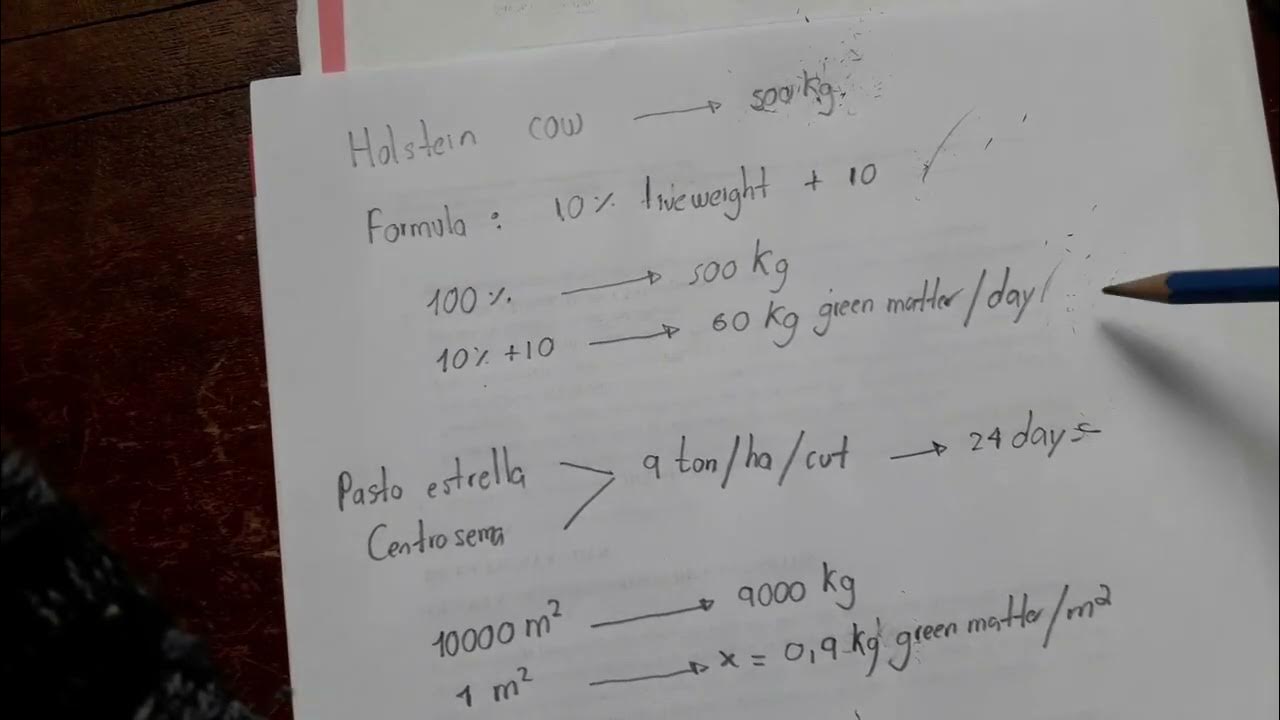 Holstein cow → 500 kg
Formula: 10% liveweight + 10
100% → 500 kg
10% +10 → 60 kg green matter/day
Pasto estrella
Centrosema
9 ton/ha/cut → 24 days
10000 m² → 9000 kg
1 m² → x = 0,9 kg green matter/m²